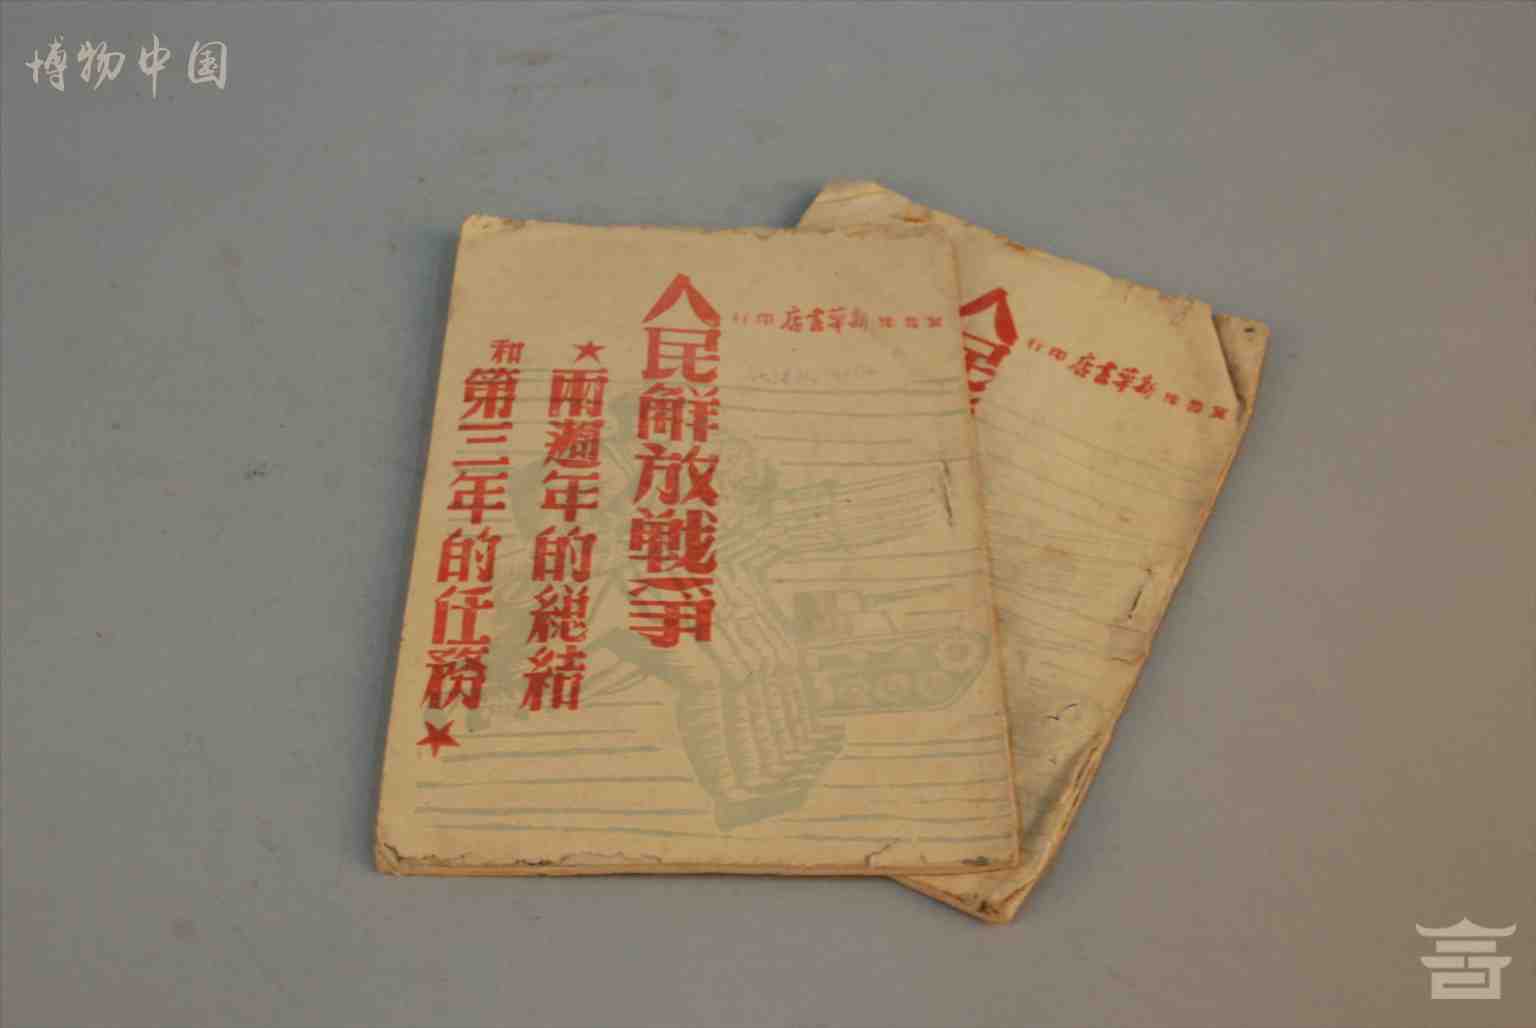 博物中国
冀魯豫新華書店印行
人民解放戰爭
★兩週年的総結
和第三年的任務★
人民
冀魯豫新華書店印行